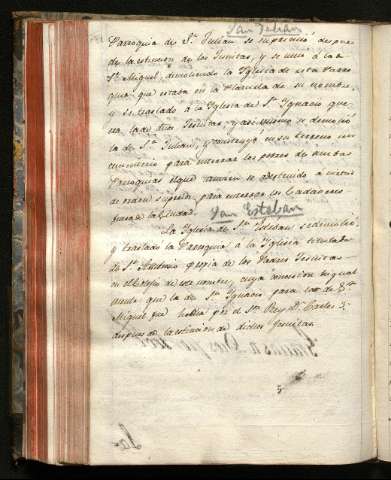 San Julián
Parroquia de Sn. Julian se suprimió despues
de la extincion de los Jesuitas, y se unió á la de
Sn. Miguel, demoliendo la Yglesia de esta Parro
quia que estaba en la Plazuela de su nombre,
y se trasladó á la Yglesia de Sn. Ygnacio que
de dhos Jesuitas, y asi mismo se demolió
la de Sn. Julian, y construyó en su terreno un
cementerio para enterrar los pobres de ambas
Parroquias
de orden superior para enterrar los Cadaveres
fuera de la Ciudad. San Esteban
La Yglesia de Sn. Esteban se demolió
y trasladó la Parroquia á la Yglesia titulada
de Sn. Antonio propia de los Padres Jesuitas
en el Colegio de este nombre, cuya concesion igual
mente que la de Sn. Ygnacio para la de Sn.
Miguel fue hecha por el Sor. Rey Dn. Carlos 3º
despues de la extincion de dichos Jesuitas.
La